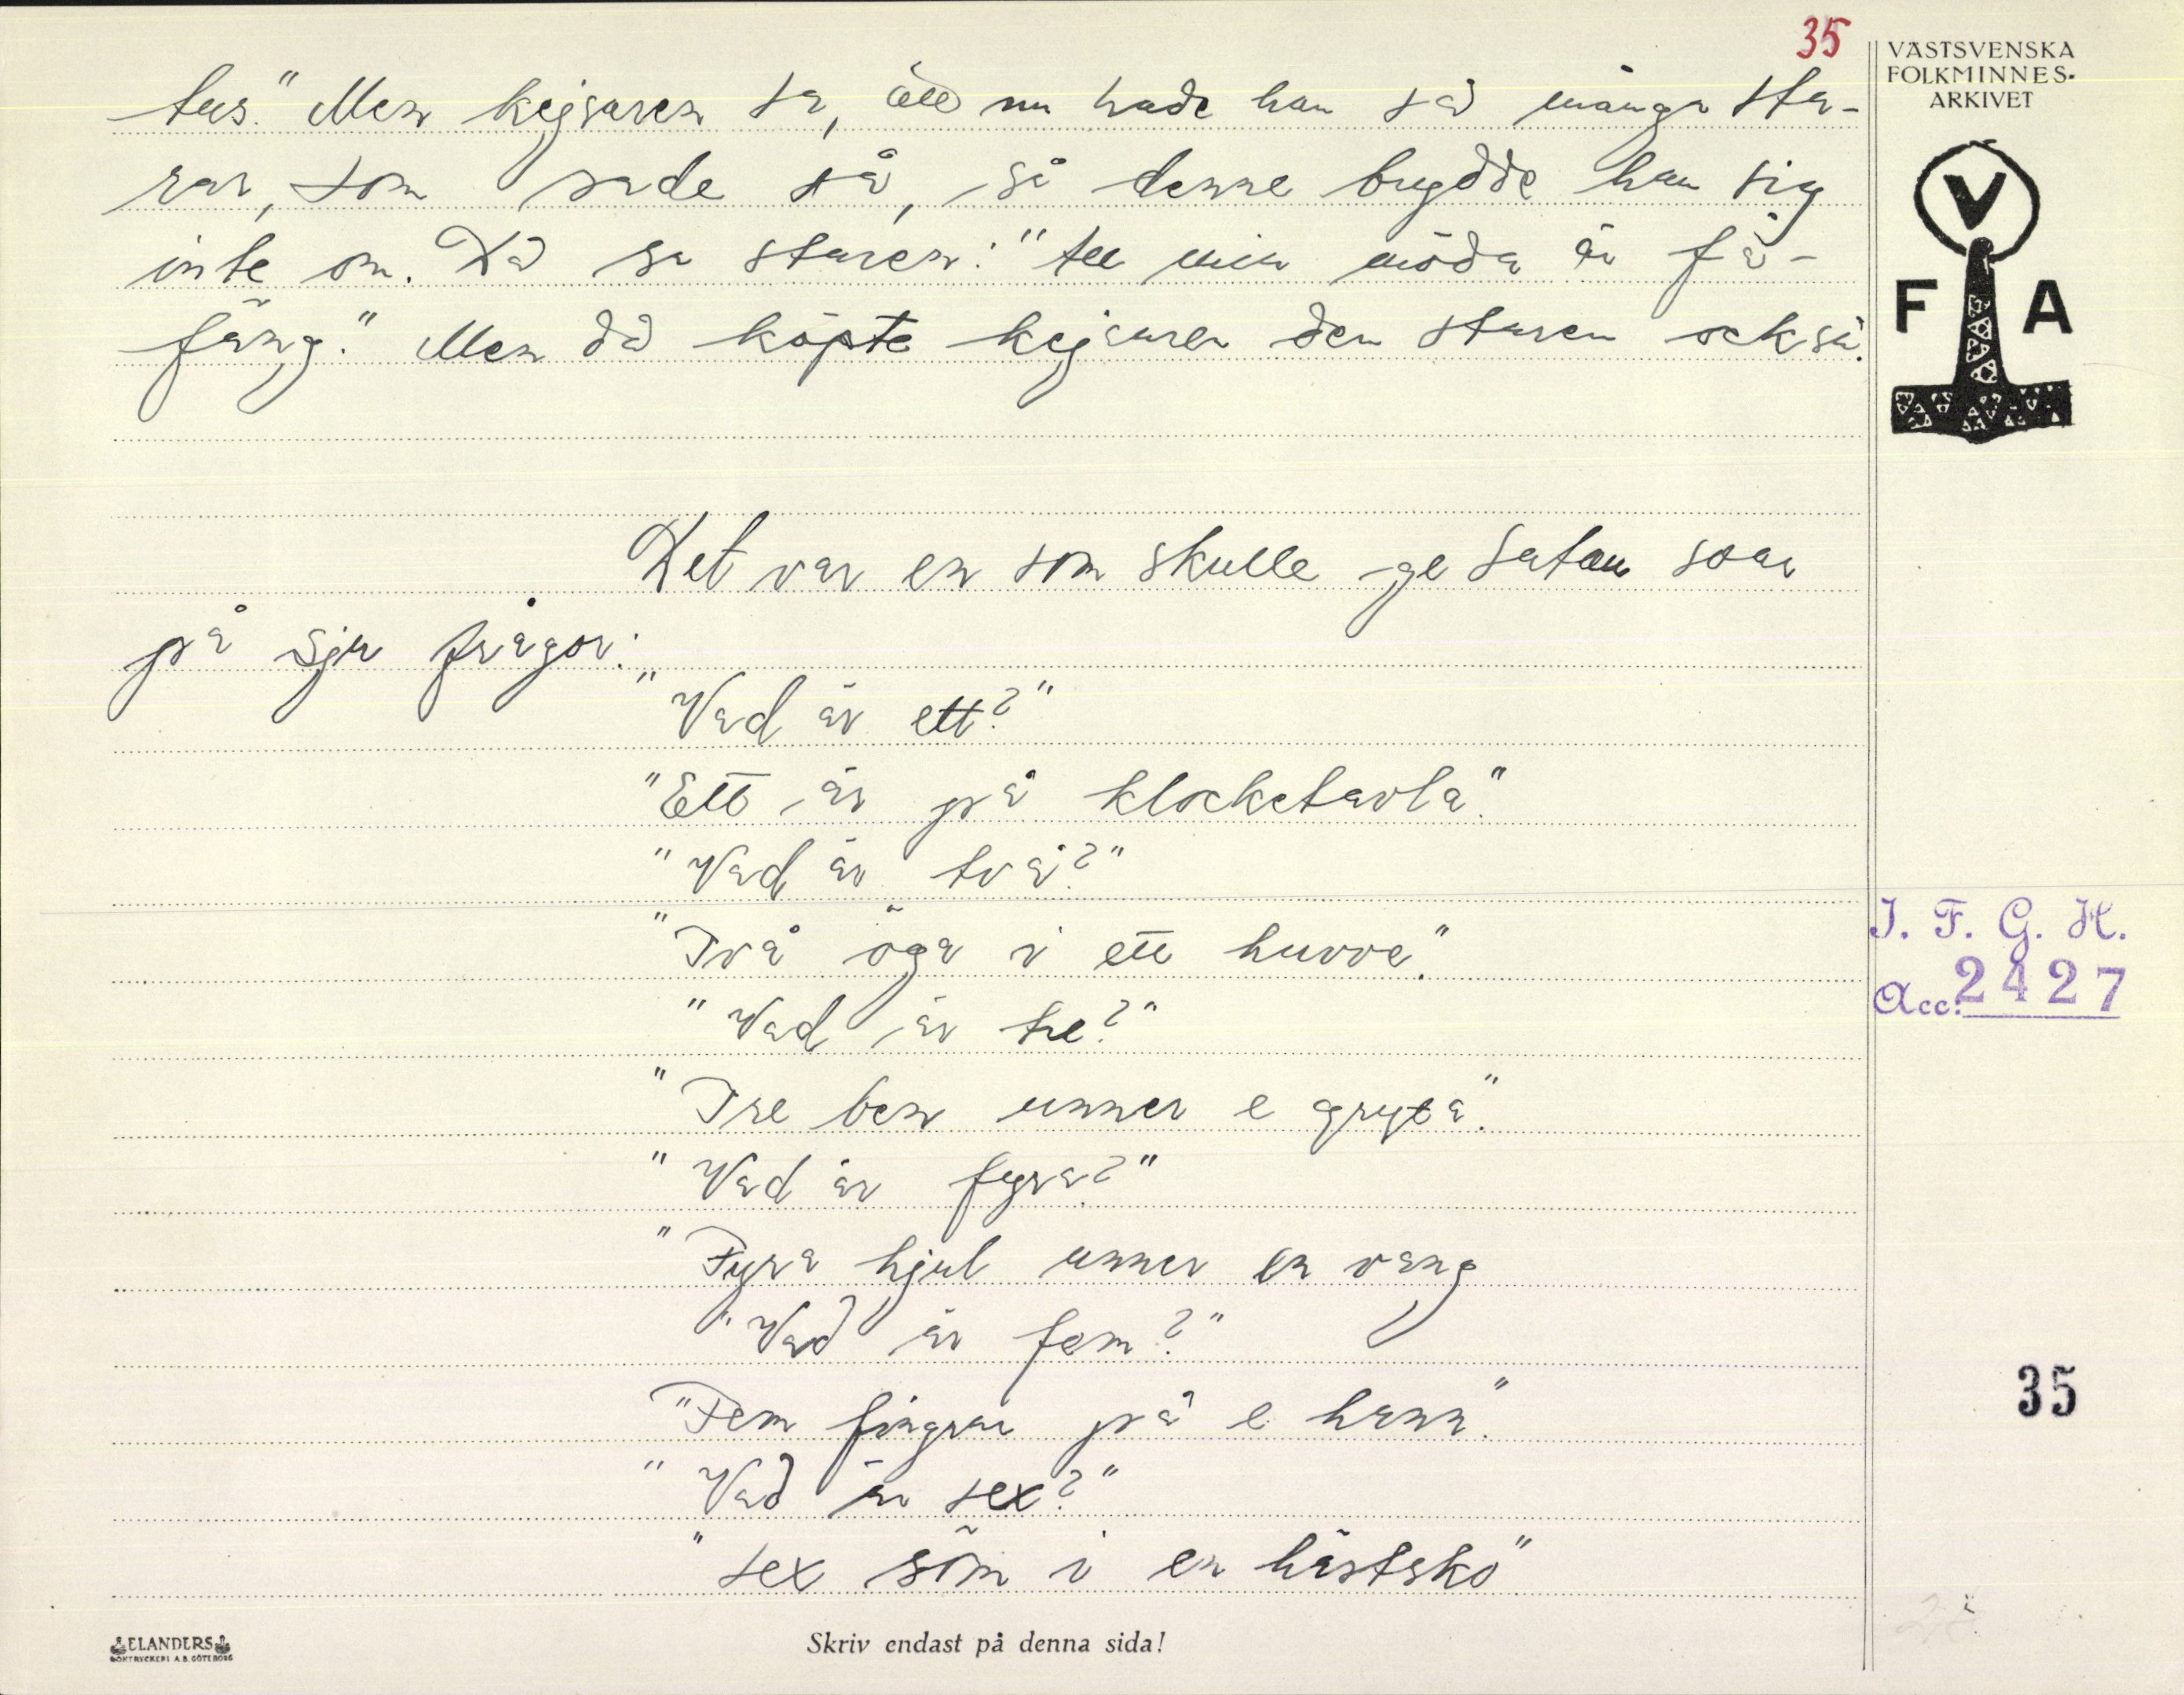 35
tus." Men kejsaren sa, att nu hade han så många sta-
rar, som sade så, så denne brydde han sig
inte om. Då sa staren: "all min möda är få-
fäng." Men då köpte kejsaren den staren också.
Det var en som skulle ge Satan svar
på sju frågor:
"Vad är ett?"
"Ett är på klocketavla."
"Vad är två?"
"Två öga i ett huvve."
"Vad är tre?"
"Tre ben unner e gryta."
"Vad är fyra?"
"Fyra hjul unner en vang
"Vad är fem?"
"Fem fingrar på e hann."
"Vad är sex?"
"sex söm i en hästsko"
VÄSTSVENSKA
FOLKMINNES-
ARKIVET
V
F A
I. F. G. H.
Acc. 2427
35
ELANDERS
BOKTRYCKERI A.B. GÖTEBORG
Skriv endast på denna sida!